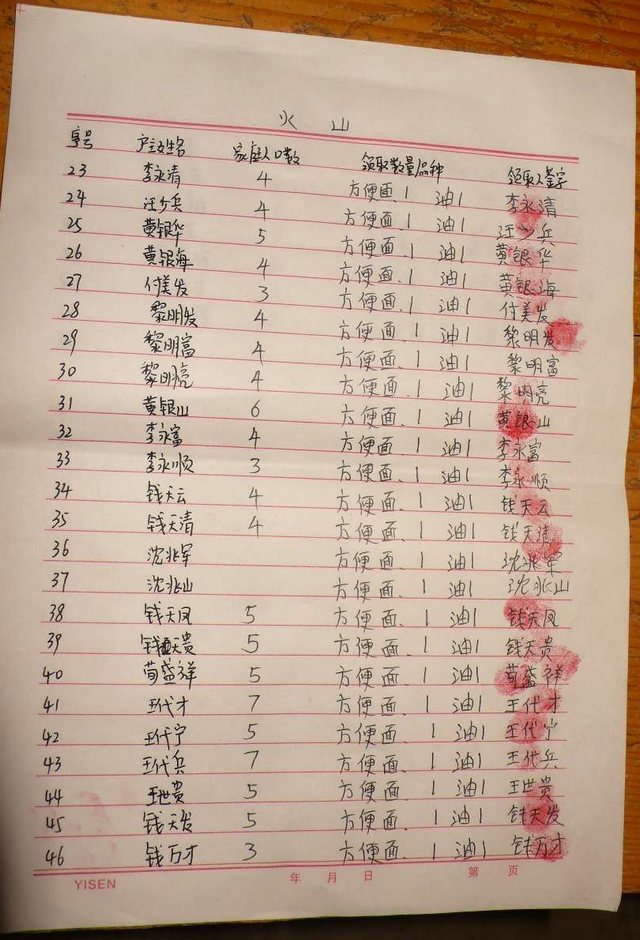 火山
序号 户主姓名 家庭人口数 领取数量品种 领取人签字
23 李永清 4 方便面.1 油1 李永清
24 汪少兵 4 方便面.1 油1 汪少兵
25 黄银华 5 方便面.1 油1 黄银华
26 黄银海 4 方便面.1 油1 黄银海
27 付美发 3 方便面.1 油1 付美发
28 黎明发 4 方便面.1 油1 黎明发
29 黎明富 4 方便面.1 油1 黎明富
30 黎明亮 4 方便面.1 油1 黎明亮
31 黄银山 6 方便面.1 油1 黄银山
32 李永富 4 方便面.1 油1 李永富
33 李永顺 3 方便面.1 油1 李永顺
34 钱天云 4 方便面.1 油1 钱天云
35 钱天清 4 方便面.1 油1 钱天清
36 沈兆军 方便面.1 油1 沈兆军
37 沈兆山 方便面.1 油1 沈兆山
38 钱天凤 5 方便面.1 油1 钱天凤
39 钱天贵 5 方便面.1 油1 钱天贵
40 荀盛祥 5 方便面.1 油1 荀盛祥
41 王代才 7 方便面.1 油1 王代才
42 王代宁 5 方便面.1 油1 王代宁
43 王代兵 7 方便面.1 油1 王代兵
44 王世贵 5 方便面.1 油1 王世贵
45 钱天发 5 方便面.1 油1 钱天发
46 钱万才 3 方便面.1 油1 钱万才
YISEN 年 月 日 第 页